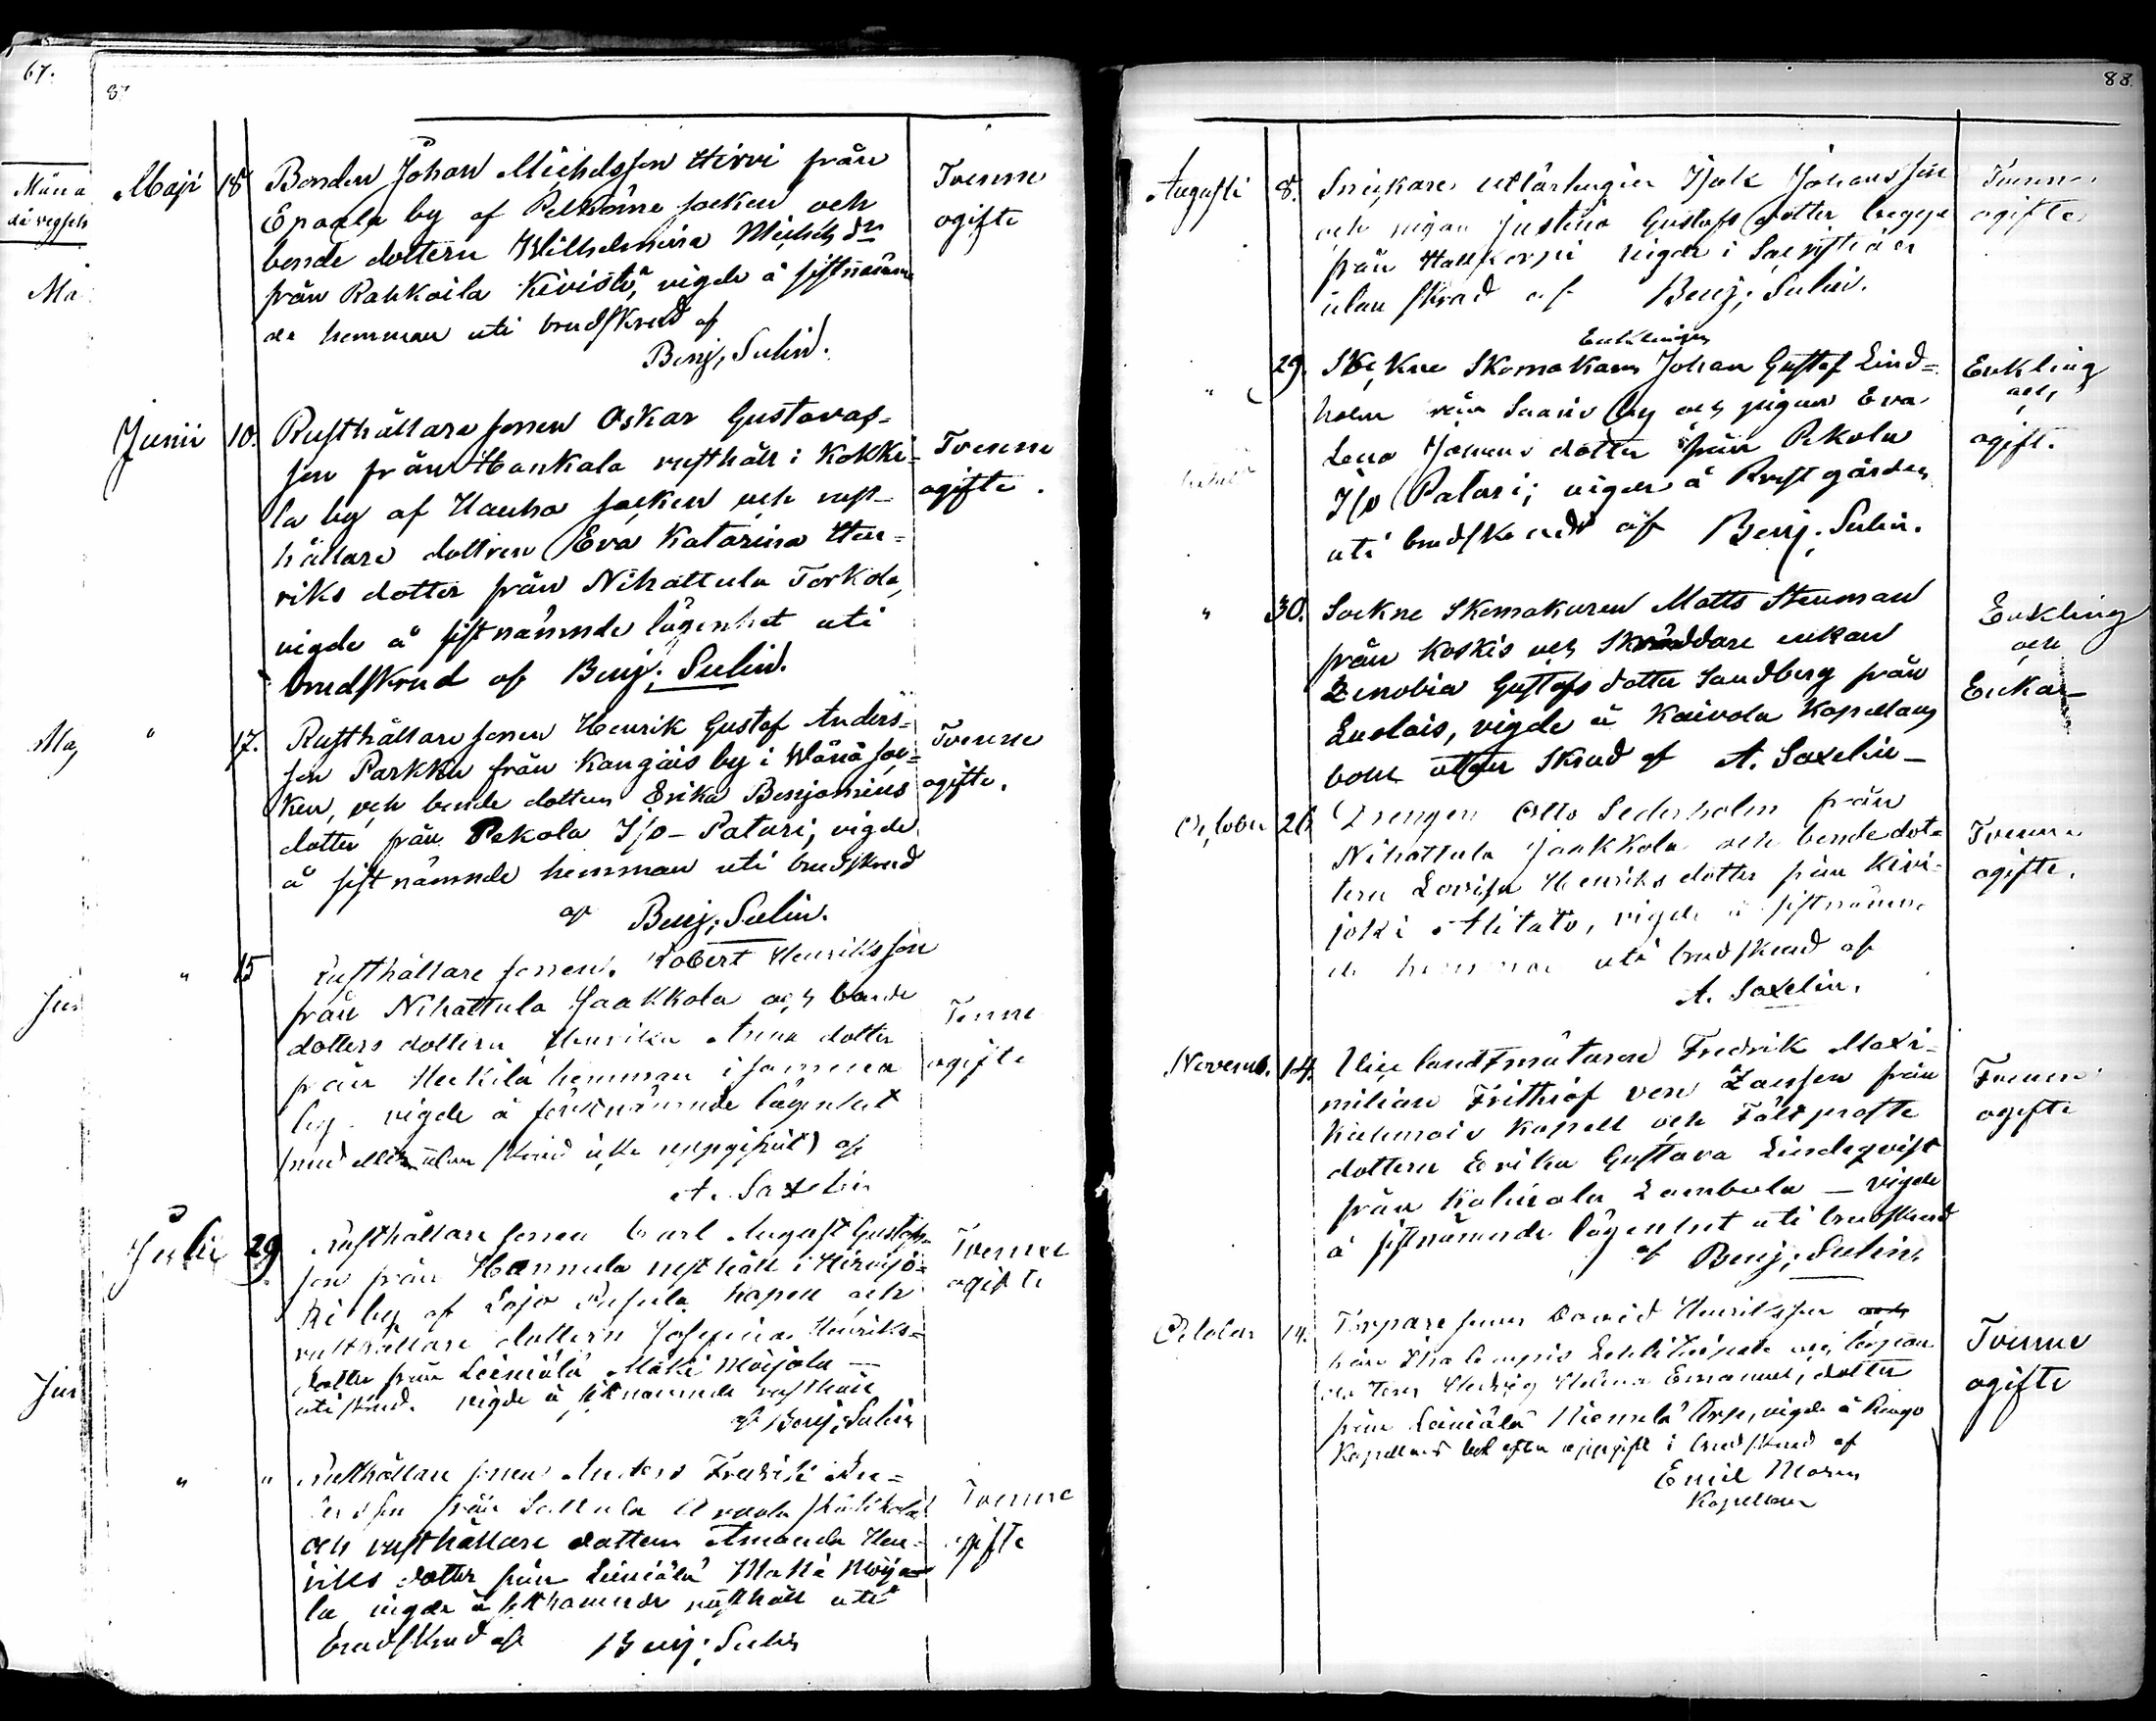 67.
Måna
Ma
Maj
Jun
Jun
87
Maji 18 Bonden Johan Michelsson Hirvi från
Epaala by af Pelkäne socken och
bonde dottern Wilhelmina Michels dr
från Rahkoila Kivistö, vigde å sistnämn
de hemman uti brudskrud af
Benj. Sulin.
Tvenne
ogifte
Junii 10. Rusthållare sonen Oskar Gustavas-
son från Hankala rusthåll i Kokki-
la by af Hauho socken och rust-
hållare dottren Eva Katarina Hen-
riks dotter från Nihattula Torkola,
vigde å sistnämnde lägenhet uti
brudskrud af Benj. Sulin.
Tvenne
ogifte.
" 17. Rusthållare sonen Henrik Gustaf Anders-
son Parkku från Kangais by i Wånå soc-
ken, och bonde dottern Erika Benjamins
dotter från Pekola I/o - Paturi, vigde
å sistnämnde hemman uti brudskrud
af Benj. Sulin.
Tvenne
ogifte.
" 15 Rusthållare sonen Robert Henriksson
från Nihattula Jaakkola och bonde
dotters dottern Henrika Anna dotter
från Heikilä hemman i samma
by vigde å förstnämnde lägenhet
(med eller utan skrud icke uppgifvit) af
A. Saxelin
Tvenne
ogifte
Julii 29 Rusthållare sonen Carl August Gustafs-
son från Hannula rusthåll i Hirvijo-
ki by af Lojo kapell och
rusthållare dottern Josefina Henriks-
dotter från Leiniälä Mäki Moijola —
uti skrud. vigde å sistnämnde rusthåll
af Benj. Sulin
Tvenne
ogifte
" " Rusthållare sonen Anders Fredrik An-
dersson från Sattula
och rusthållare dottern Amanda Hen-
riks dotter från Leiniälä Mäki Moija-
la vigde å sistnämnde rusthåll uti
brudskrud af Benj. Sulin
Tvenne
ogifte
88.
Augusti 8. Snickare Isak Johansson
och pigan Justina Gustafs dotter begge
från vigde i Sacristian
utan skrud af Benj. Sulin.
Tvenne
ogifte
Enklingen
" 29. Skomakaren Johan Gustaf Lind-
holm från Saaris by och pigan Eva
Lena Johans dotter från Pekola
I/o Paturi; vigde å Prestgården
uti brudskrud af Benj. Sulin.
Enkling
och
ogift.
" 30. Sockne Skomakaren Matts Stenman
från Koskis och Skräddare enkan
Zenobia Gustafs dotter Sandberg från
Luolais, vigde å Kaivola Kapellans
bohl utan skrud af A. Saxelin —
Enkling
och
Enka —
October 26 Drengen Otto Sederholm från
Nihattula Jaakkola och bonde dot-
tern Lovisa Henriks dotter från Kivi-
joki Alitalo, vigde å sistnämn
de hemman uti brudskrud af
A. Saxelin.
Tvenne
ogifte.
Novemb. 14. Vice landtmätaren Fredrik Maxi-
milian Frithiof von Zansen från
Kapell och Fältprosts
dottern Erika Gustava Lindeqvist
från — vigde
å sistnämnde lägenhet uti brudskrud
af Benj. Sulin.
Tvenne
ogifte
October 14. Torpare sonen David Henriksson
från
dottern Hedvig Helena Emanuels dotter
från Leiniälä torp, vigde å Rengo
Kapellans bol efter uppgift i brudskrud af
Emil
Kapellan
Tvenne
ogifte